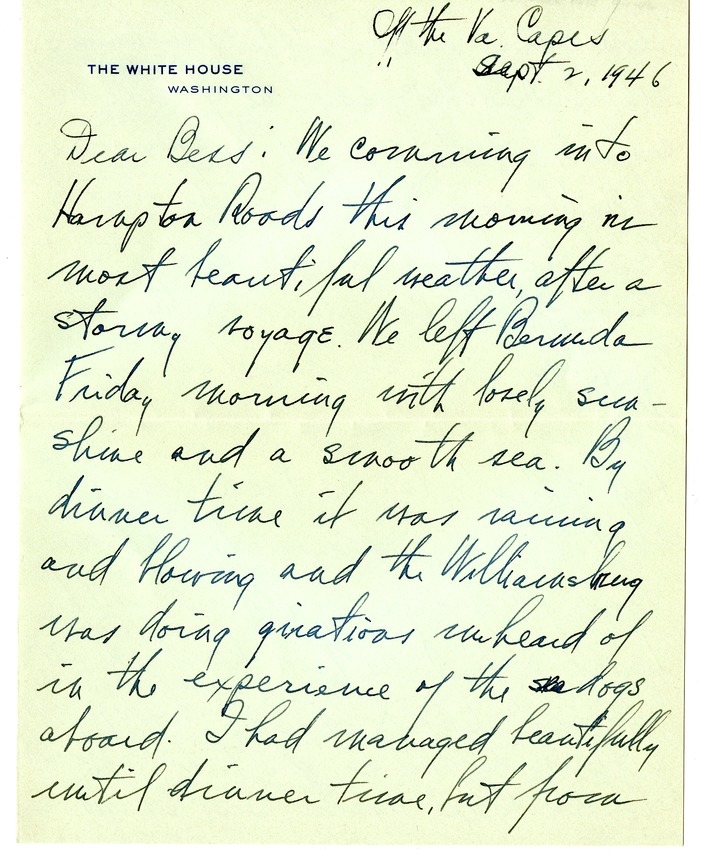 Off the Va. Capes
Sept. 2, 1946
THE WHITE HOUSE
WASHINGTON
Dear Bess: We comming into
Hampton Roads this morning in
most beautiful weather, after a
stormy voyage. We left Bermuda
Friday morning with lovely sun-
shine and a smooth sea. By
dinner time it was raining
and blowing and the Williamsburg
was doing girations unheard of
in the experience of the sea dogs
aboard. I had managed beautifully
until dinner time, but from